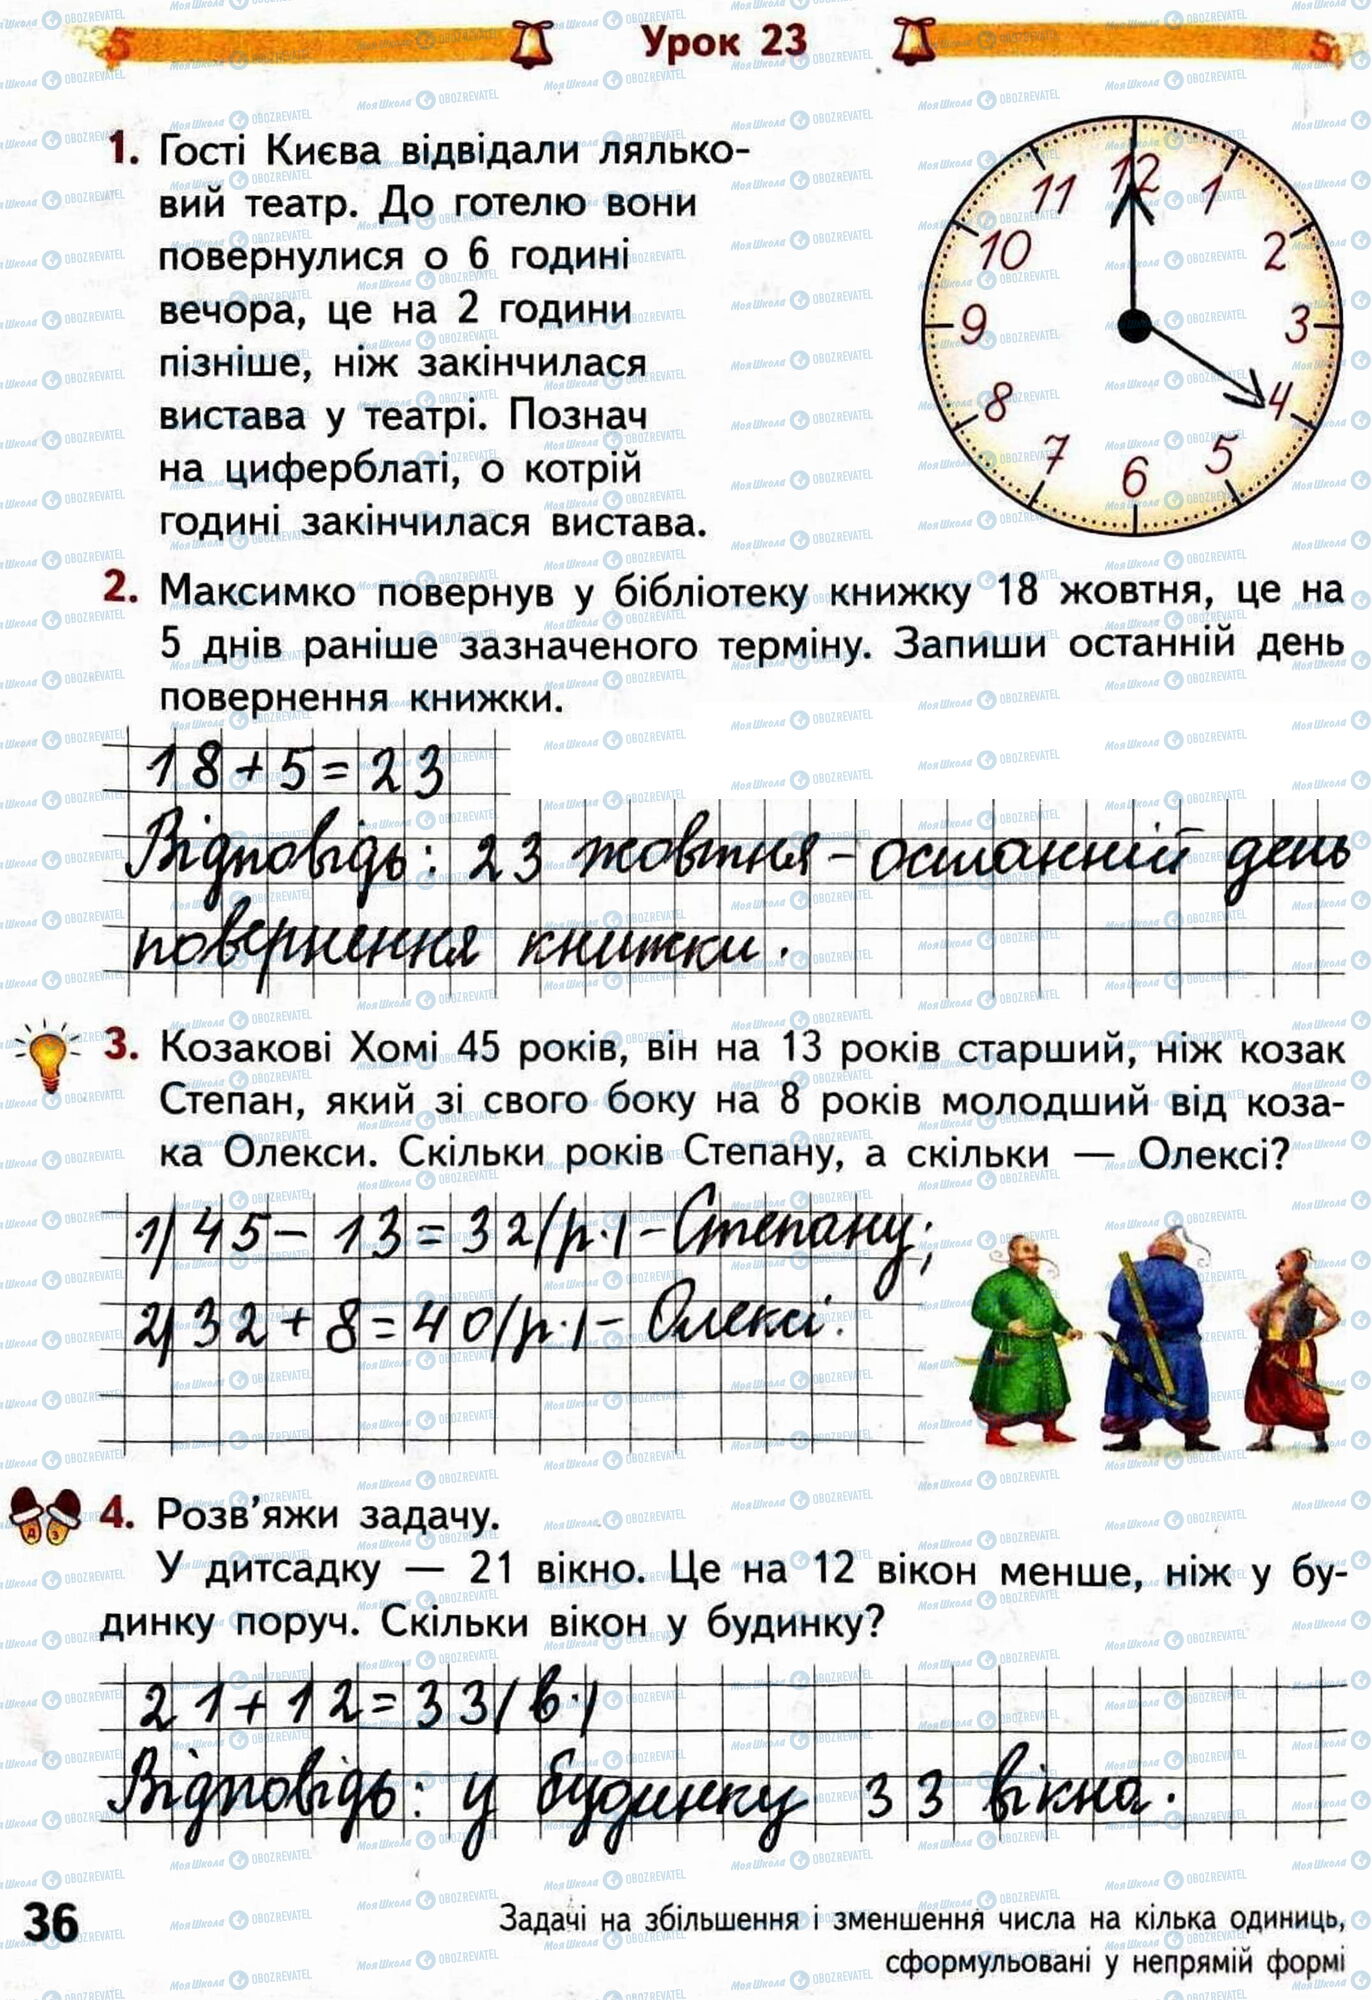 Урок 23
1. Гості Києва відвідали лялько-
вий театр. До готелю вони
повернулися о 6 годині
вечора, це на 2 години
пізніше, ніж закінчилася
вистава у театрі. Познач
на циферблаті, о котрій
годині закінчилася вистава.
12
1
2
3
4
5
6
7
8
9
10
11
2. Максимко повернув у бібліотеку книжку 18 жовтня, це на
5 днів раніше зазначеного терміну. Запиши останній день
повернення книжки.
18+5=23
Відповідь: 23 жовтня – останній день
повернення книжки.
3. Козакові Хомі 45 років, він на 13 років старший, ніж козак
Степан, який зі свого боку на 8 років молодший від коза-
ка Олекси. Скільки років Степану, а скільки — Олексі?
1) 45 – 13 = 32 (р.) – Степану;
2) 32 + 8 = 40 (р.) – Олексі.
4. Розв'яжи задачу.
У дитсадку — 21 вікно. Це на 12 вікон менше, ніж у бу-
динку поруч. Скільки вікон у будинку?
21+12=33 (в.)
Відповідь: у будинку 33 вікна.
36
Задачі на збільшення і зменшення числа на кілька одиниць,
сформульовані у непрямій формі
МояШкола OBOZREVATEL